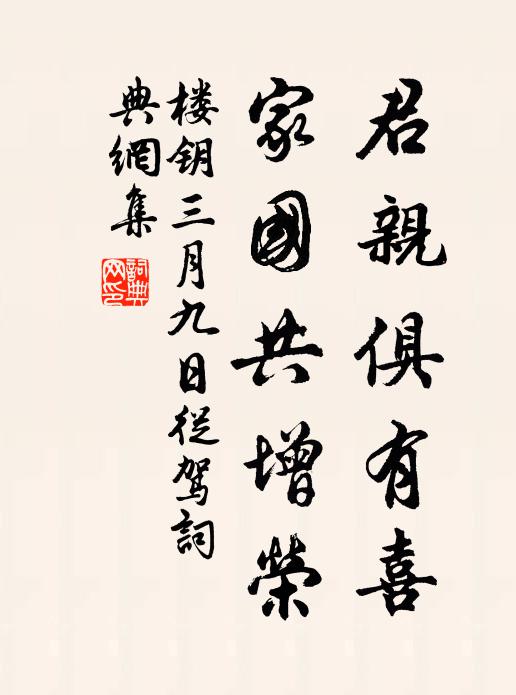 君親俱有喜
家國共增榮
楼钥三月九日從駕詞
典網集
詞典
网印